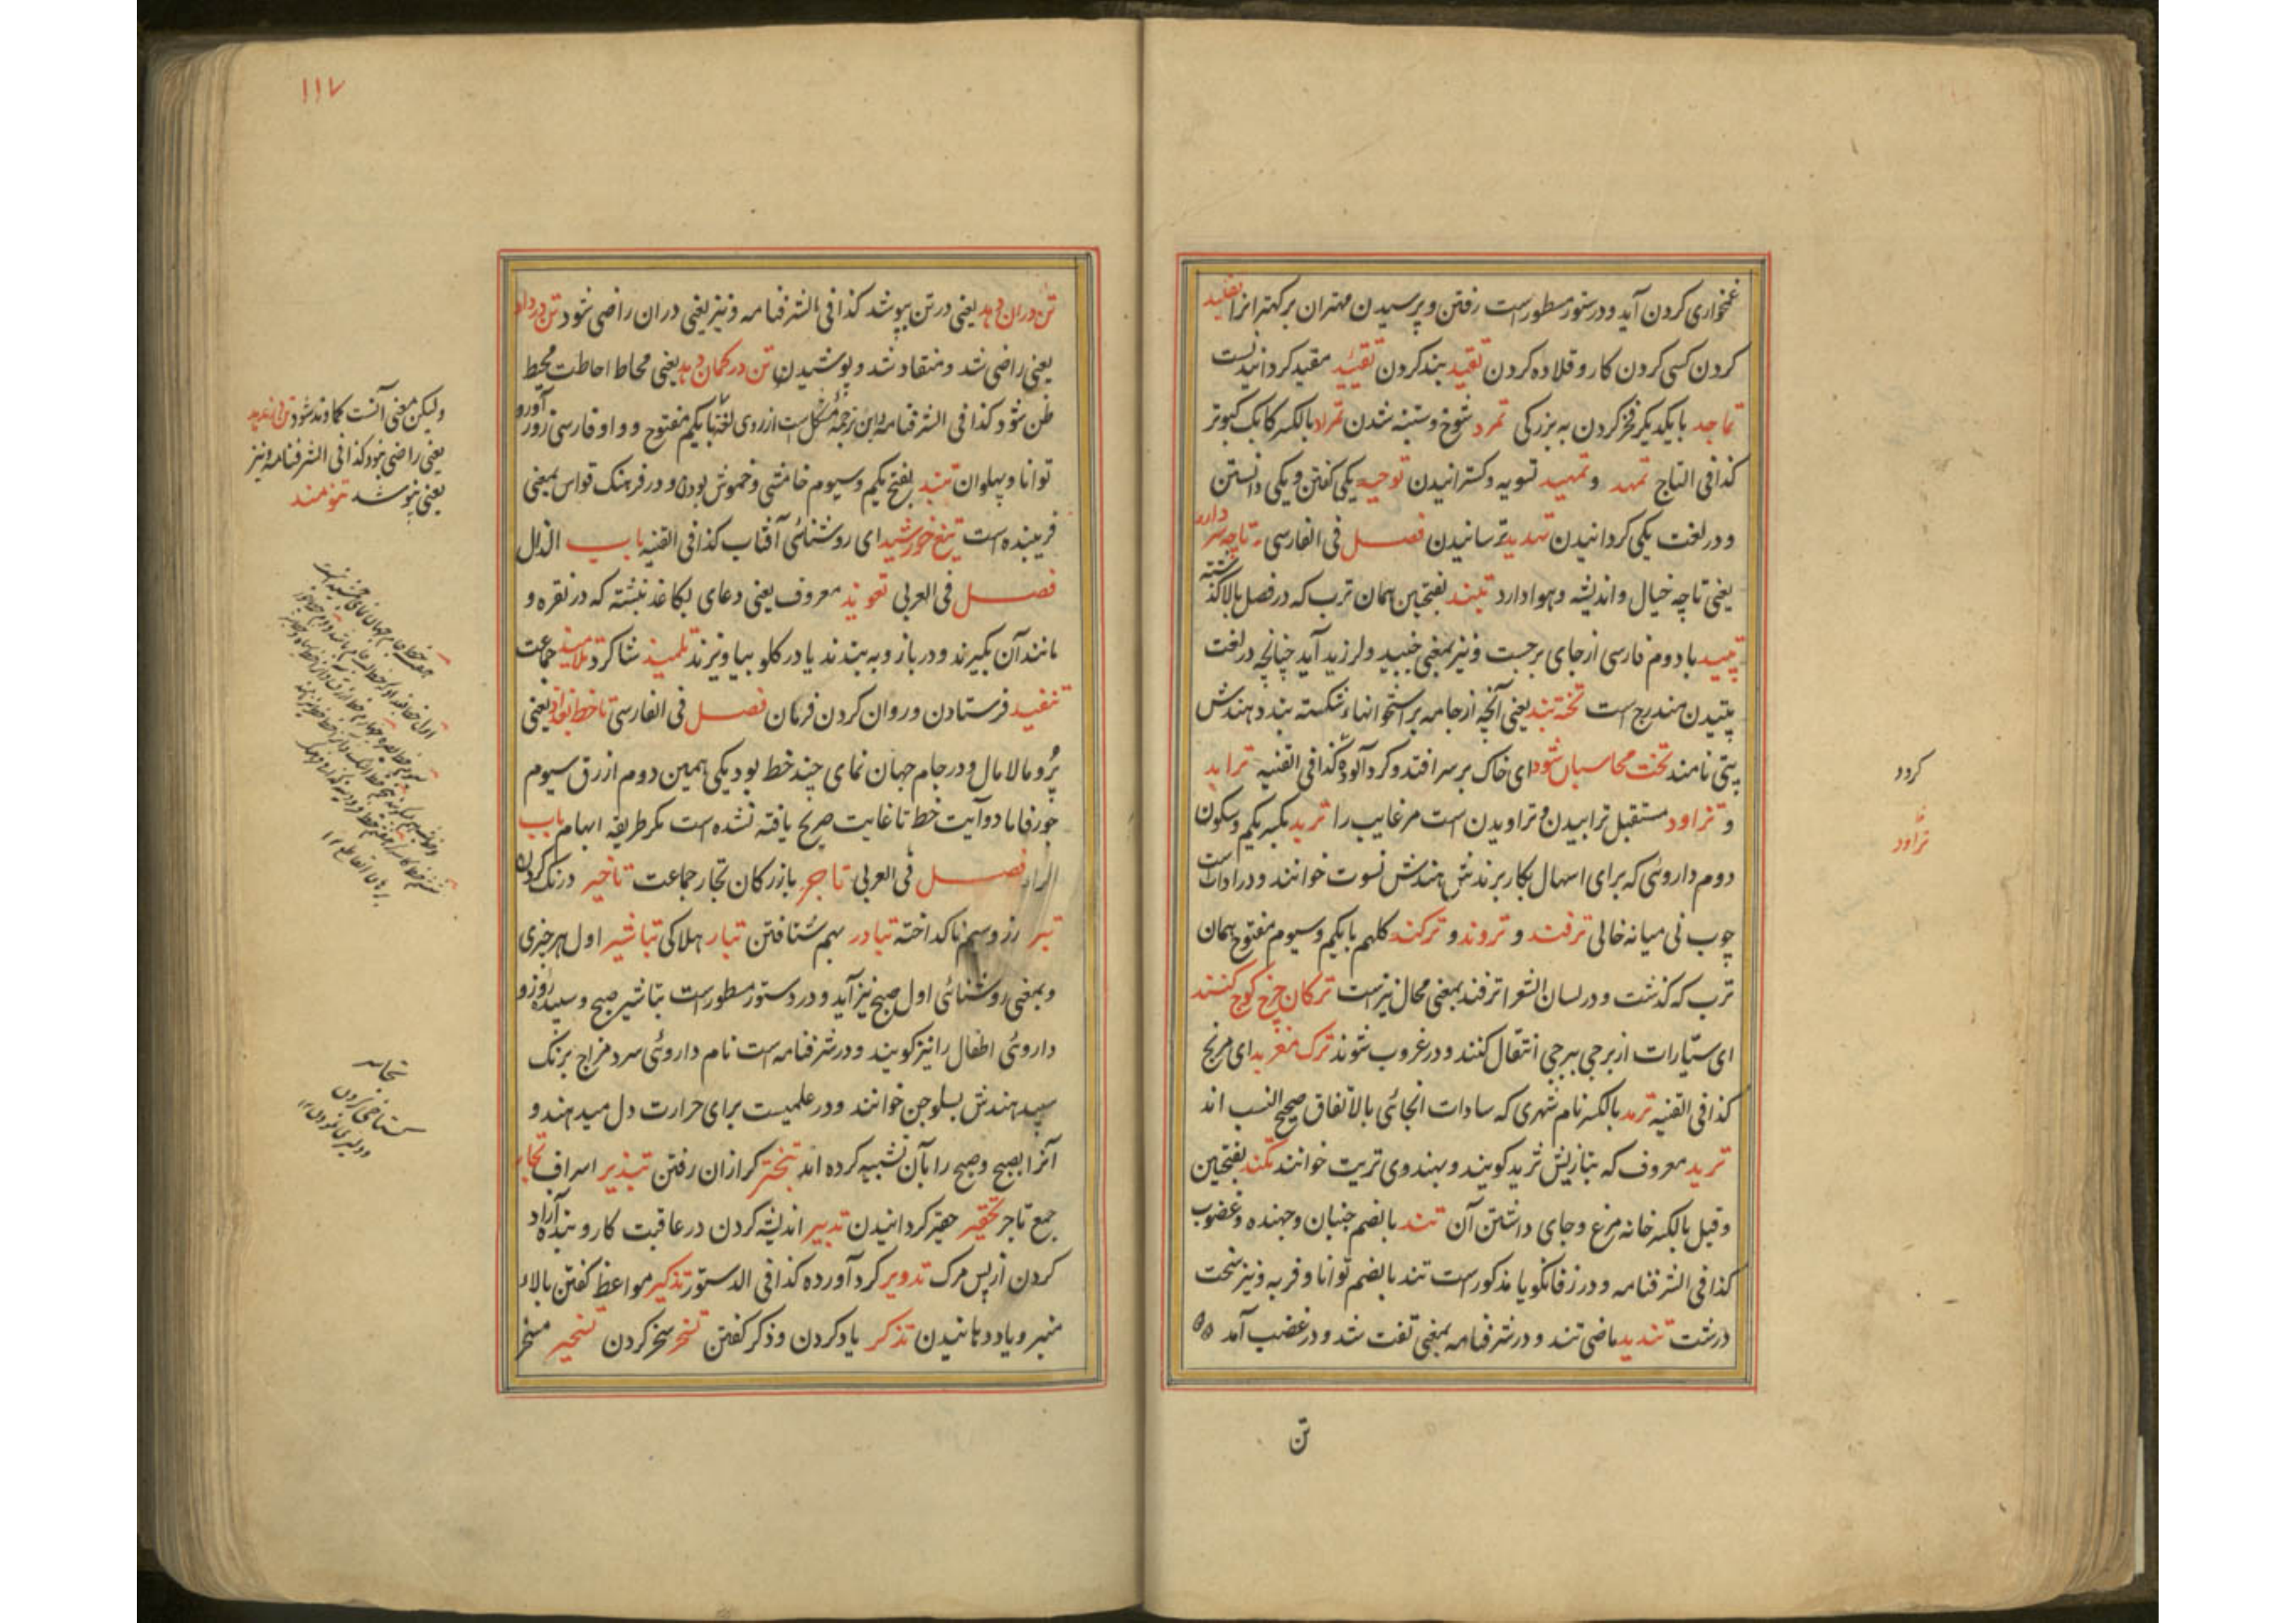 غمخواری کردن آید و در دستور مسطور است رفتن و پرسیدن مهتران بر کهتر انرا تقلید
کردن کسی کردن کار و قلاده کردن تقید بند کردن تقیید مقید کردانیدست
تماجد با یکدیگر فخر کردن به بزرکی تمرد شوخ و ستنبه شدن تمراد بالکسر کابک کبوتر
کذا فی التاج تمهد و تمهید تسویه و کسترانیدن توحید یکی کفتن و یکی دانستن
و در لغت یکی کردانیدن تهدید ترسانیدن فصل فی الفارسی تا چه سر دارد
یعنی تا چه خیال و اندیشه و هوا دارد تبند بفتحتین همان ترب که در فصل بالا کذشته
تپید با دوم فارسی از جای برجست و نیز بمعنی جنبید و لرزید آید چنانچه در لغت
تپیدن مندرج است تخته بند یعنی آنچه از جامه بر استخوانهاء شکسته بندد هندش
پتی نامند تخت محاسبان شود ای خاک بر سر افتد و کرد آلوده کذا فی القنیه ترابد
و تراود مستقبل ترابیدن و تراویدن است مر غایب را تربد بکسر یکم و سکون
دوم داروئی که برای اسهال بکار برندش هندش نسوت خوانند و در ادات است
چوب نی میانه خالی ترفند و تروند و ترکند کلهم با یکم و سیوم مفتوح همان
ترب که کذشت و در لسان الشعرا ترفند بمعنی محال نیز است ترکان چرخ کوچ کنند
ای سیّارات از برجی ببرجی انتقال کنند و در غروب شوند ترک مغربد ای مریخ
کذا فی القنیه ترمد بالکسر نام شهری که سادات انجائی بالاتفاق صحیح النسب اند
ترید معروف که بتازیش ثرید کویند و بهندوی تریت خوانند تکند بفتحتین
و قیل بالکسر خانه مرغ و جای داشتن آن تند بالضم جنبان و جهنده و غضوب
کذا فی الشرفنامه و در زفانکویا مذکور است تند بالضم توانا و فربه و نیز سخت
درشت تندید ماضی تند و در شرفنامه بمعنی تفت شد و در غضب آمد
تن
کردد
تراود
۱۱۷
تن در ان دهد یعنی در تن بپوشد کذا فی الشرفنامه و نیز یعنی در ان راضی شود تن در داد
یعنی راضی شد و منقاد شد و پوشیدن تن در کمان دهد یعنی محاط احاطت محیط
ظن شود کذا فی الشرفنامه و این ترجمه مشکل است از روی لغت با یکم مفتوح و واو فارسی زور آور و
توانا و پهلوان تنند بفتح یکم و سیوم خامشی و خموش بودن و در فرهنک قواس بمعنی
فریبنده است تیغ خورشید ای روشنائی آفتاب کذا فی القنیه باب الذال
فصل فی العربی تعویذ معروف یعنی دعای بکاغذ نبشته که در نقره و
مانند آن بکیرند و در بازو به بندند یا در کلو بیاویزند تلمیذ شاکرد تلامیذ جماعت
تنفیذ فرستادن و روان کردن فرمان فصل فی الفارسی تا خط بغداد یعنی
پُر و مالامال و در جام جهان نمای چند خط بود یکی همین دوم ازرق سیوم
خورفاما دو آیت خط تا غایت صریح یافته نشده است مکر طریقه ابهام باب
الراء فصل فی العربی تاجر بازرکان تجار جماعت تاخیر درنک کردن
تبر زر و سیم ناکداخته تبادر بهم شتافتن تبار هلاکی تباشیر اول هر چیزی
و بمعنی روشنائی اول صبح نیز آید و در دستور مسطور است تباشیر صبح و سپیده روز و
داروئی اطفال را نیز کویند و در شرفنامه است نام داروئی سرد مزاج برنک
سپید هندش بسلوچن خوانند و در علمیست برای حرارت دل میدهند و
آنرا بصبح و صبح را بآن تشبیه کرده اند تبختر کرازان رفتن تبذیر اسراف تجار
جمع تاجر تحقیر حقیر کردانیدن تدبیر اندیشه کردن در عاقبت کار و بنده آزاد
کردن از پس مرک تدویر کرد آورده کذا فی الدستور تذکیر مواعظ کفتن بالاء
منبر و یاد دهانیدن تذکر یاد کردن و ذکر کفتن تسخر سخر کردن تسخیر مسخر
ولیکن معنی آنست که اوند شود تن در ندهد
یعنی راضی نبود کذا فی الشرفنامه و نیز
یعنی نپوشد تنومند
تجاسر
کستاخی کردن
و دلیری نمودن ۱۲